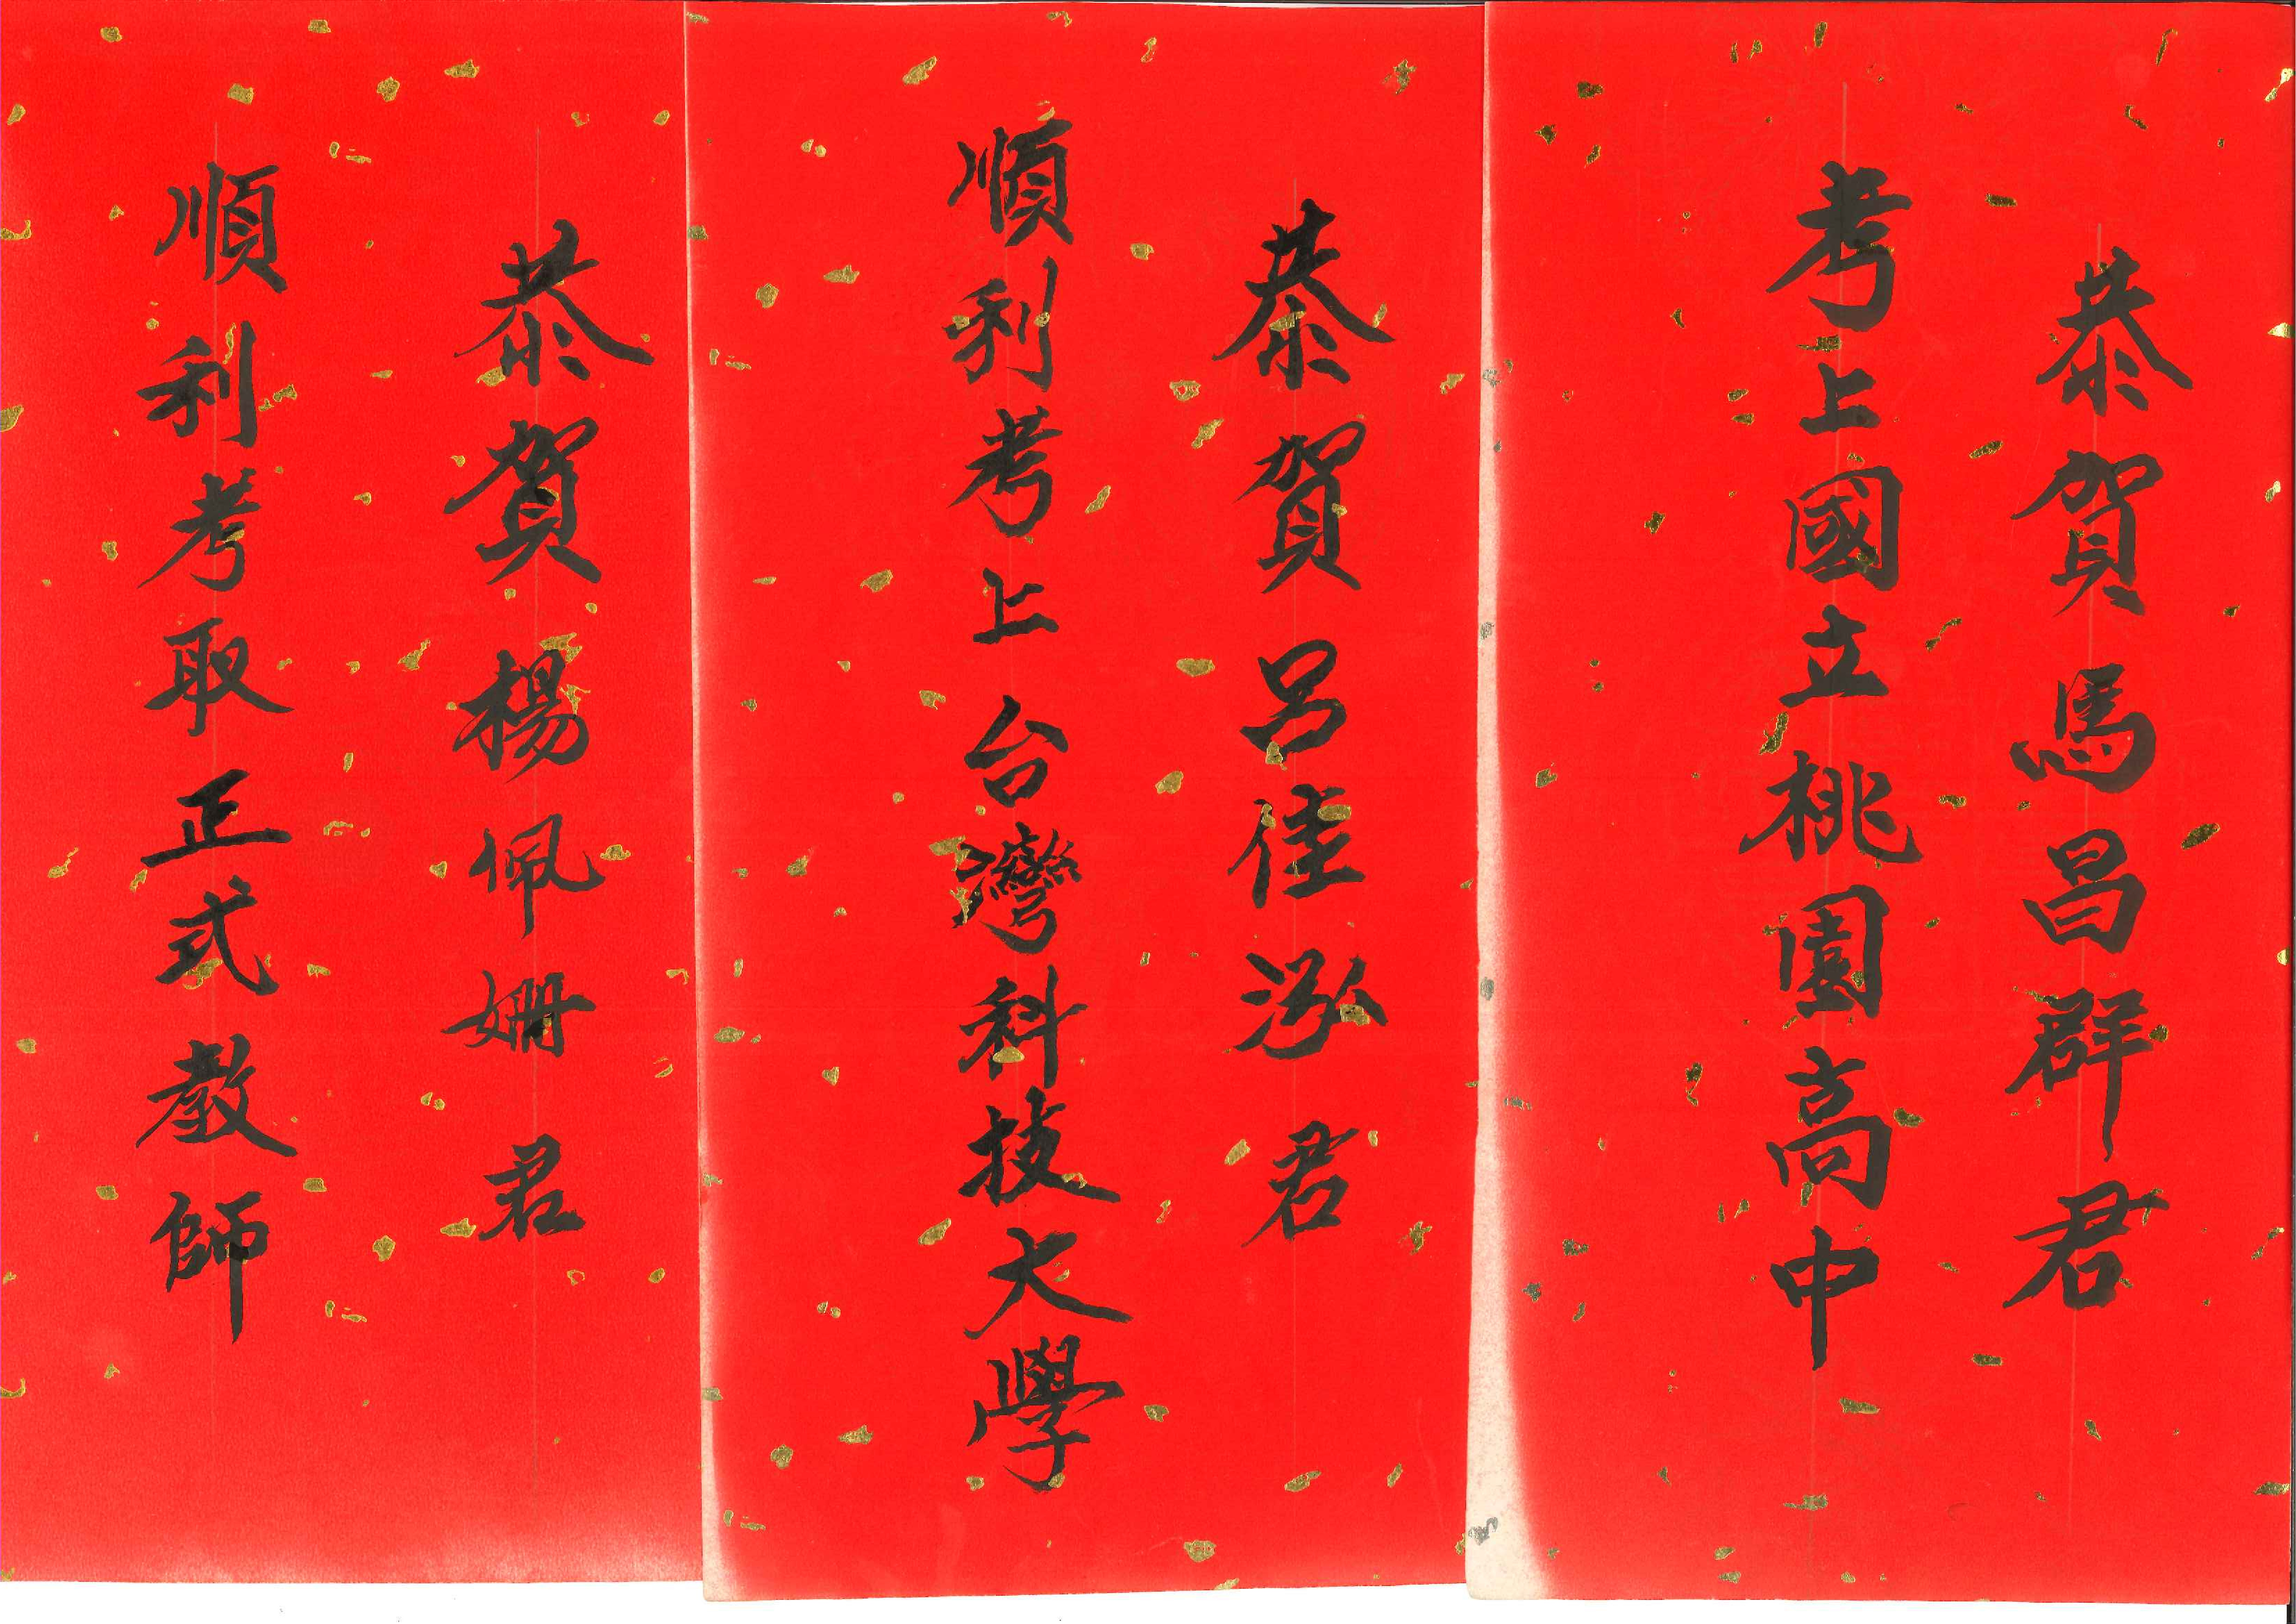 恭賀馬昌群君
考上國立桃園高中
恭賀呂佳泓君
順利考上台灣科技大學
恭賀楊佩姍君
順利考取正式教師